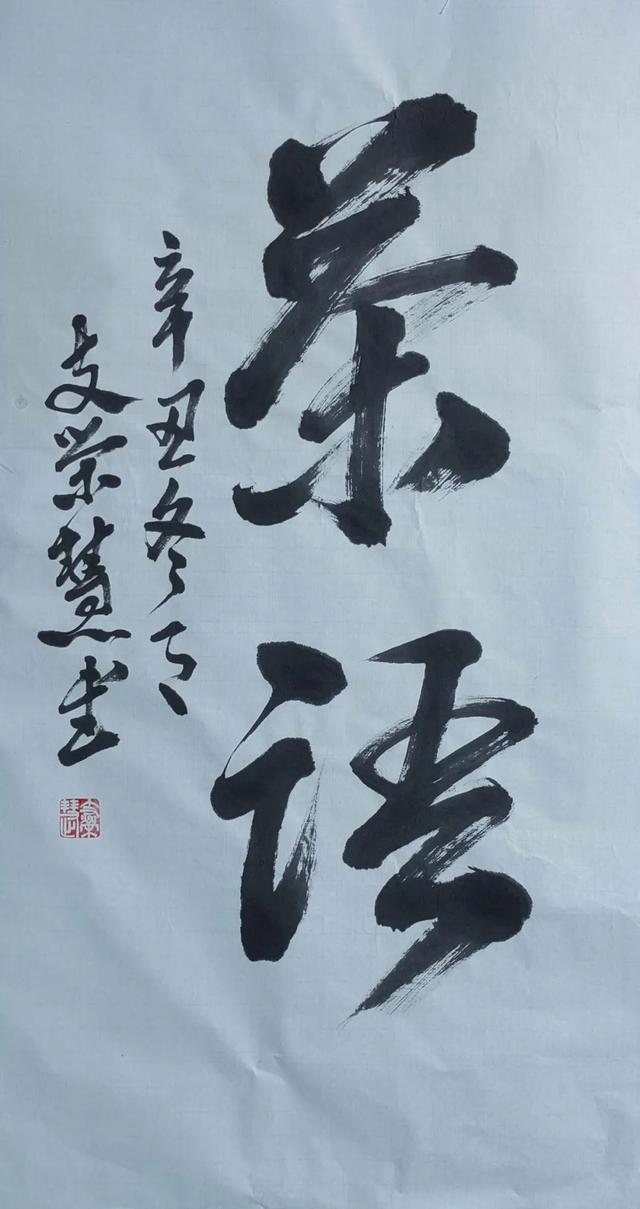 茶语
辛丑冬月
支荣慧書